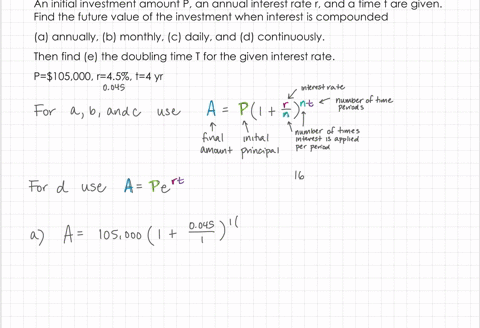 An initial investment amount P, an annual interest rate r, and a time t are given.
Find the future value of the investment when interest is compounded
(a) annually, (b) monthly, (c) daily, and (d) continuously.
Then find (e) the doubling time T for the given interest rate.
P=$105,000, r=4.5%, t=4 yr
0.045
interest rate
For a, b, and c use A = P(1 + r/n)^nt
number of time periods
final amount
initial principal
number of times interest is applied per period
16
For d use A = Pe^rt
a) A = 105,000 (1 + 0.045/1)^1(